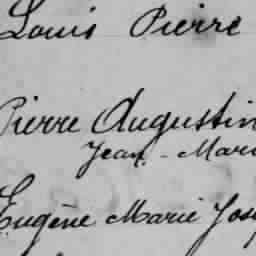 Louis Pierre
Pierre Augustin
Jean-Marie
Eugène Marie Jos